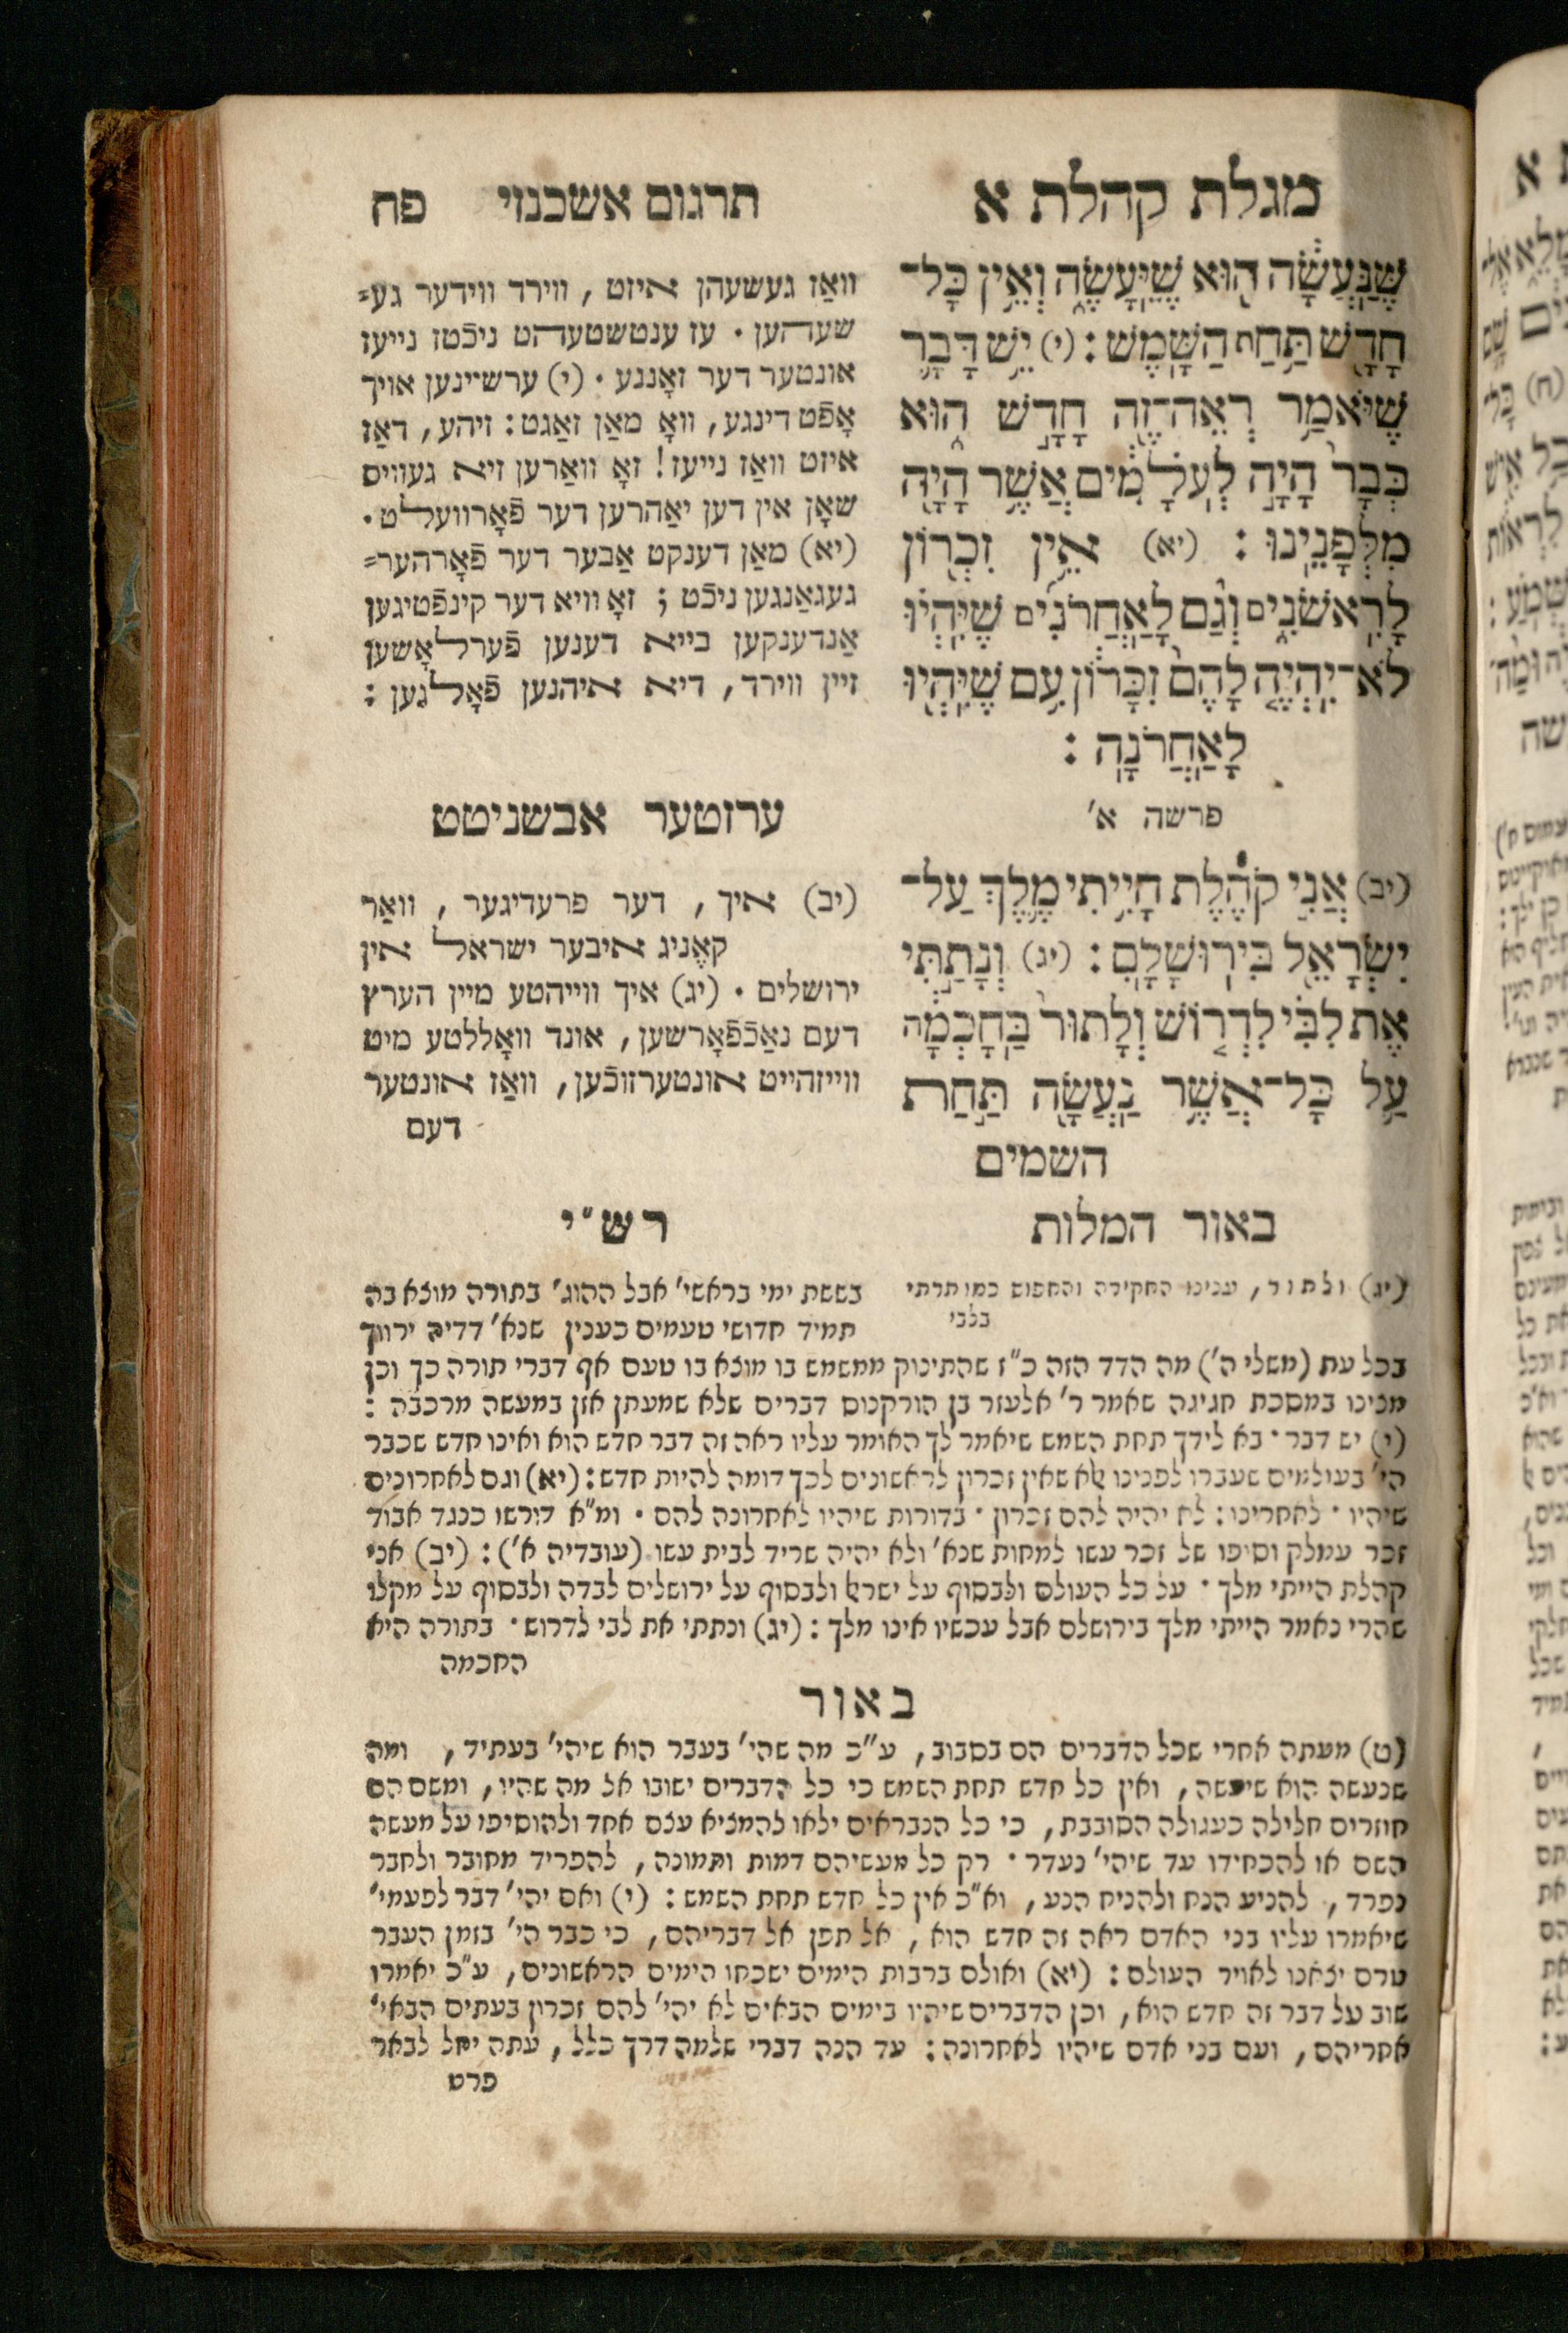 מגלת קהלת א
שֶׁנַּעֲשָׂה הוּא שֶׁיֵּעָשֶׂה וְאֵין כָּל־
חָדָשׁ תַּחַת הַשָּׁמֶשׁ : (י) יֵשׁ דָּבָר
שֶׁיֹּאמַר רְאֵה־זֶה חָדָשׁ הוּא
כְּבָר הָיָה לְעֹלָמִים אֲשֶׁר הָיָה
מִלְּפָנֵינוּ : (יא) אֵין זִכְרוֹן
לָרִאשֹׁנִים וְגַם לָאַחֲרֹנִים שֶׁיִּהְיוּ
לֹא־יִהְיֶה לָהֶם זִכָּרוֹן עִם שֶׁיִּהְיוּ
לָאַחֲרֹנָה :
פרשה א'
(יב) אֲנִי קֹהֶלֶת הָיִיתִי מֶלֶךְ עַל־
יִשְׂרָאֵל בִּירוּשָׁלָםִ : (יג) וְנָתַתִּי
אֶת לִבִּי לִדְרוֹשׁ וְלָתוּר בַּחָכְמָה
עַל כָּל־אֲשֶׁר נַעֲשָׂה תַּחַת
השמים
תרגום אשכנזי פח
וואַז געשעהן איזט , ווירד ווידער גע=
שעהען . עז ענטשטעהט ניכֿטז נייעז
אונטער דער זאָננע . (י) ערשיינען אויך
אָפֿט דינגע, וואָ מאַן זאַגט : זיהע, דאַז
איזט וואַז נייעז! זאָ וואַרען זיא געוויס
שאָן אין דען יאַהרען דער פֿאָרוועלט .
(יא) מאַן דענקט אַבער דער פֿאָרהער=
געגאַנגען ניכֿט ; זאָ וויא דער קינפֿטיגען
אַנדענקען בייא דענען פֿערלאָשען
זיין ווירד, דיא איהנען פֿאָלגען :
ערזטער אבשניטט
(יב) איך , דער פרעדיגער , וואַר
קאֶניג איבער ישראל אין
ירושלים . (יג) איך ווייהטע מיין הערץ
דעם נאַכֿפֿאָרשען, אונד וואָללטע מיט
ווייזהייט אונטערזוכֿען, וואַז אונטער
דעם
באור המלות
(יג) ולתור, ענינו החקירה והחפוש כמו תרתי
בלבי
רש״י
בששת ימי בראשי' אבל ההוג' בתורה מוצא בה
תמיד חדושי טעמים כענין שנא' דדיה ירווך
בכל עת (משלי ה') מה הדד הזה כ"ז שהתינוק ממשמש בו מוצא בו טעם אף דברי תורה כך וכן
מצינו במסכת חגיגה שאמר ר' אלעזר בן הורקנוס דברים שלא שמעתן אזן במעשה מרכבה :
(י) יש דבר · בא לידך תחת השמש שיאמר לך האומר עליו ראה זה דבר חדש הוא ואינו חדש שכבר
הי' בעולמים שעברו לפנינו אלא שאין זכרון לראשונים לכך דומה להיות חדש : (יא) וגם לאחרונים
שיהיו · לאחרינו : לא יהיה להם זכרון · בדורות שיהיו לאחרונה להם . ומ"א דורשו כנגד אבוד
זכר עמלק וסיפו של זכר עשו למחות שנא' ולא יהיה שריד לבית עשו (עובדיה א') : (יב) אני
קהלת הייתי מלך · על כל העולם ולבסוף על ישראל ולבסוף על ירושלים לבדה ולבסוף על מקלו
שהרי נאמר הייתי מלך בירושלם אבל עכשיו אינו מלך : (יג) ונתתי את לבי לדרוש · בתורה היא
החכמה
באור
(ט) מעתה אחרי שכל הדברים הם בסבוב, ע"כ מה שהי' בעבר הוא שיהי' בעתיד, ומה
שנעשה הוא שיעשה, ואין כל חדש תחת השמש כי כל הדברים ישובו אל מה שהיו, ומשם הם
חוזרים חלילה כעגולה הסובבת, כי כל הנבראים ילאו להמציא עצם אחד ולהוסיפו על מעשה
השם או להכחידו עד שיהי' נעדר · רק כל מעשיהם דמות ותמונה, להפריד מחובר ולחבר
נפרד, להניע הנח ולהניח הנע, וא"כ אין כל חדש תחת השמש : (י) ואם יהי' דבר לפעמי'
שיאמרו עליו בני האדם ראה זה חדש הוא, אל תפן אל דבריהם, כי כבר הי' בזמן העבר
טרם יצאנו לאויר העולם : (יא) ואולם ברבות הימים ישכחו הימים הראשונים, ע"כ יאמרו
שוב על דבר זה חדש הוא, וכן הדברים שיהיו בימים הבאים לא יהי' להם זכרון בעתים הבאי'
אחריהם, ועם בני אדם שיהיו לאחרונה : עד הנה דברי שלמה דרך כלל, עתה יחל לבאר
פרט